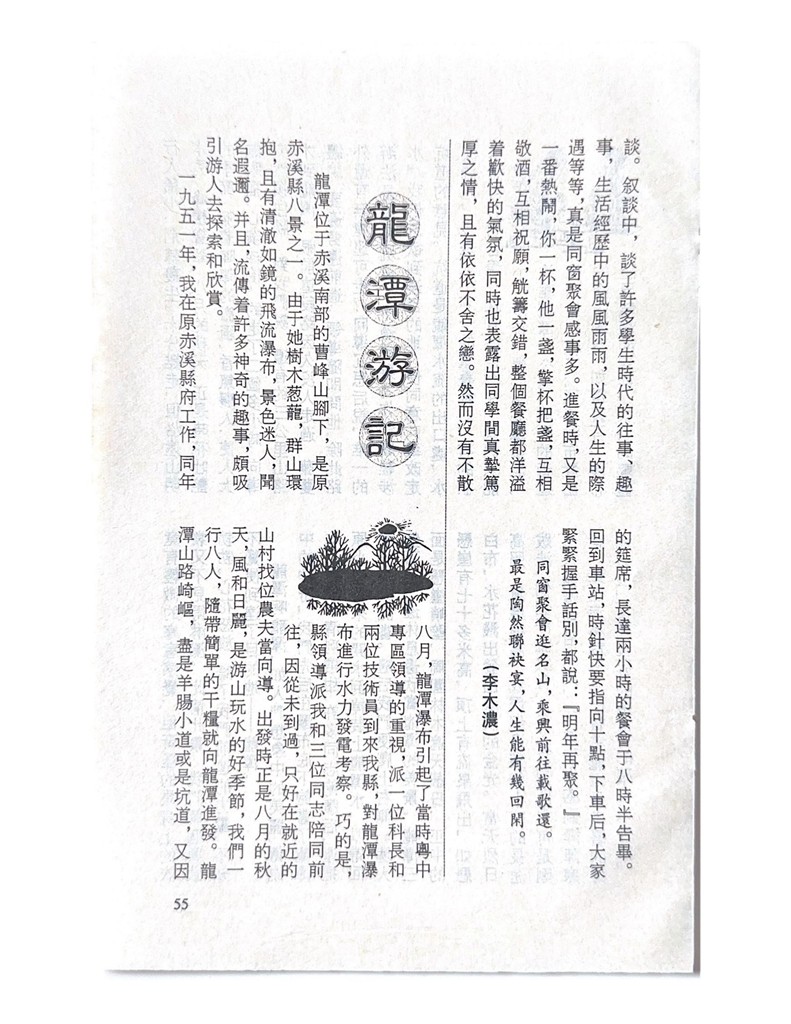 談。叙談中，談了許多學生時代的往事、趣
事，生活經歷中的風風雨雨，以及人生的際
遇等等，真是同窗聚會感事多。進餐時，又是
一番熱鬧，你一杯，他一盞，擎杯把盞，互相
敬酒，互相祝願，觥籌交錯，整個餐廳都洋溢
着歡快的氣氛，同時也表露出同學間真摯篤
厚之情，且有依依不舍之戀。然而沒有不散
的筵席，長達兩小時的餐會于八時半告畢。
回到車站，時針快要指向十點，下車后，大家
緊緊握手話別，都說：『明年再聚。』
同窗聚會逛名山，乘興前往載歌還。
最是陶然聯袂宴，人生能有幾回閑。
（李木濃）
龍潭游記
龍潭位于赤溪南部的曹峰山腳下，是原
赤溪縣八景之一。由于她樹木葱蘢，群山環
抱，且有清澈如鏡的飛流瀑布，景色迷人，聞
名遐邇。并且，流傳着許多神奇的趣事，頗吸
引游人去探索和欣賞。
一九五一年，我在原赤溪縣府工作，同年
八月，龍潭瀑布引起了當時粵中
專區領導的重視，派一位科長和
兩位技術員到來我縣，對龍潭瀑
布進行水力發電考察。巧的是，
縣領導派我和三位同志陪同前
往，因從未到過，只好在就近的
山村找位農夫當向導。出發時正是八月的秋
天，風和日麗，是游山玩水的好季節，我們一
行八人，隨帶簡單的干糧就向龍潭進發。龍
潭山路崎嶇，盡是羊腸小道或是坑道，又因
55